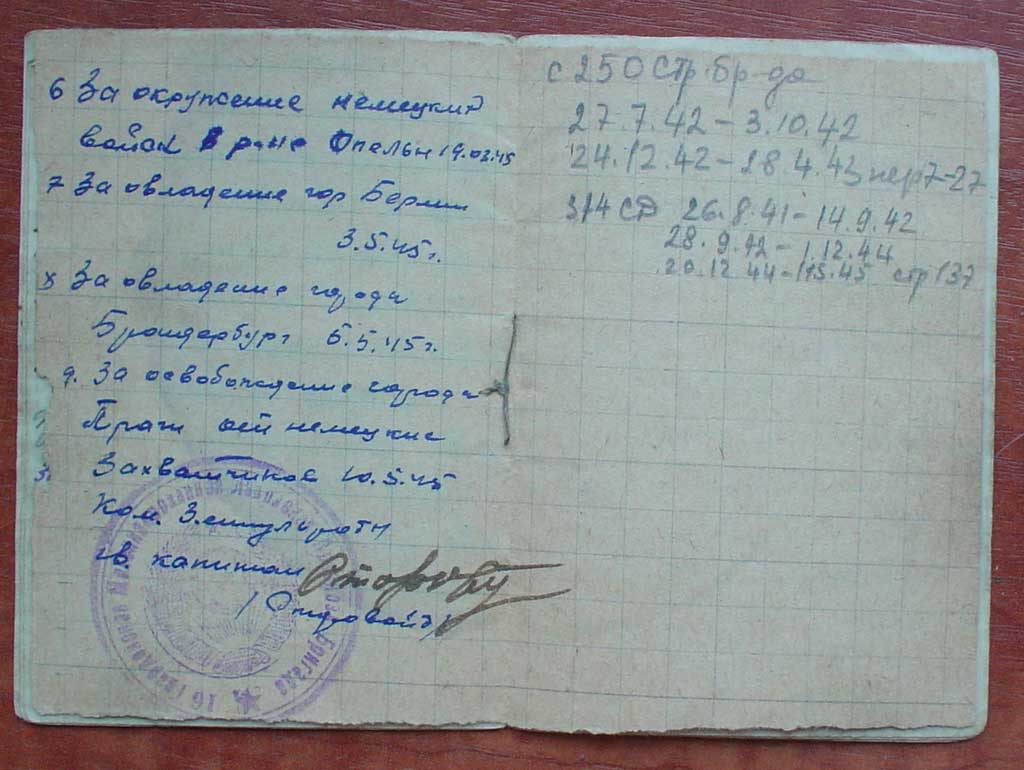 6 За окружение немецких
войск в р-не Опельн 19.03.45
7 За овладение гор Берлин
3.5.45г.
8 За овладение города
Брандербург 6.5.45г.
9. За освобождение города
Праги немецкие
Захватчиков 10.5.45
Ком. роты
гв. капитан
16 Гвардейская Бригада
с 250 Стр. бр-да
27.7.42 – 3.10.42
24.12.42 – 28.4.43 пер 7-27
314 СД 26.8.41 – 14.9.42
28.9.42 – 1.12.44
20.12.44 – 11.5.45 стр 137